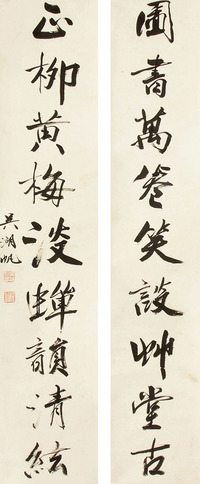 圖書萬卷笑談艸堂古
正柳黃梅淡蟬韻清絃
吳湖帆